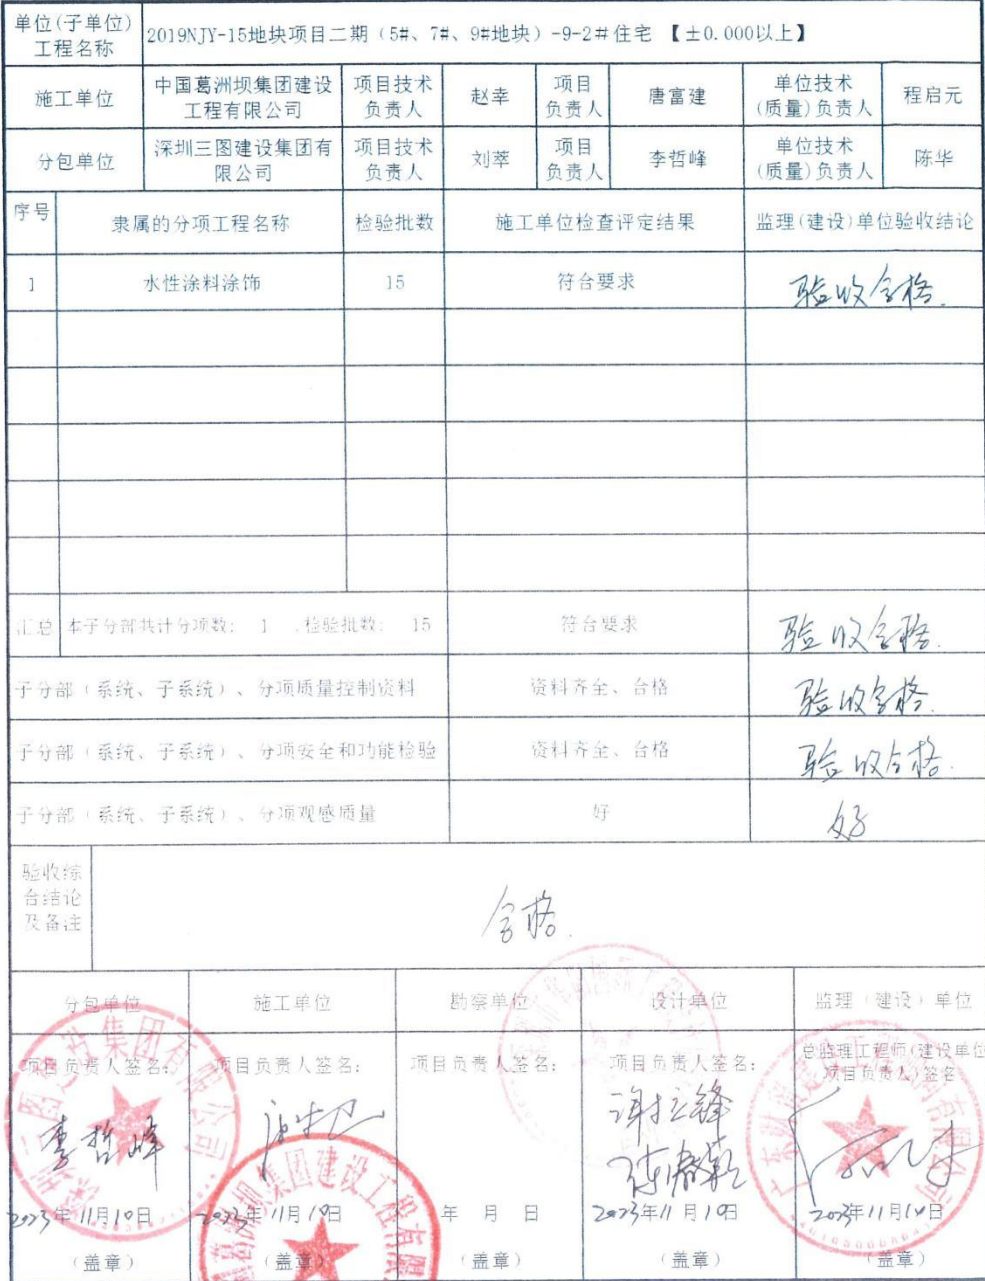 单位(子单位)
工程名称
2019NJY-15地块项目二期（5#、7#、9#地块）-9-2#住宅 【±0.000以上】
施工单位
中国葛洲坝集团建设
工程有限公司
项目技术
负责人
赵幸
项目
负责人
唐富建
单位技术
(质量)负责人
程启元
分包单位
深圳三图建设集团有
限公司
项目技术
负责人
刘萃
项目
负责人
李哲峰
单位技术
(质量)负责人
陈华
序号
隶属的分项工程名称
检验批数
施工单位检查评定结果
监理(建设)单位验收结论
1
水性涂料涂饰
15
符合要求
验收合格.
汇总
本子分部共计分项数: 1 ,检验批数: 15
符合要求
验收合格.
子分部（系统、子系统）、分项质量控制资料
资料齐全、合格
验收合格.
子分部（系统、子系统）、分项安全和功能检验
资料齐全、合格
验收合格.
子分部（系统、子系统）、分项观感质量
好
好
验收综
合结论
及备注
合格.
分包单位
施工单位
勘察单位
设计单位
监理（建设）单位
项目负责人签名:
项目负责人签名:
项目负责人签名:
项目负责人签名:
总监理工程师(建设单位
项目负责人)签名
李哲峰
2023年11月10日
2023年11月10日
年 月 日
2023年11月10日
2023年11月10日
（盖章）
（盖章）
（盖章）
（盖章）
（盖章）
葛洲坝集团建设工程有限